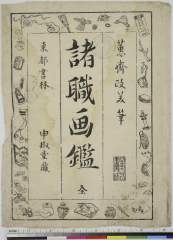 蕙齋政美筆
諸職画鑑
全
東都書林
申椒堂藏